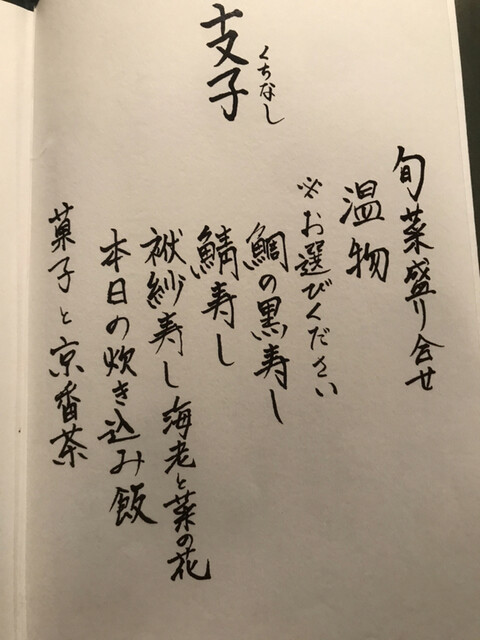 支子
くちなし
旬菜盛り合せ
温物
※お選びください
鯛の黒寿し
鯖寿し
袱紗寿し 海老と菜の花
本日の炊き込み飯
菓子と京番茶